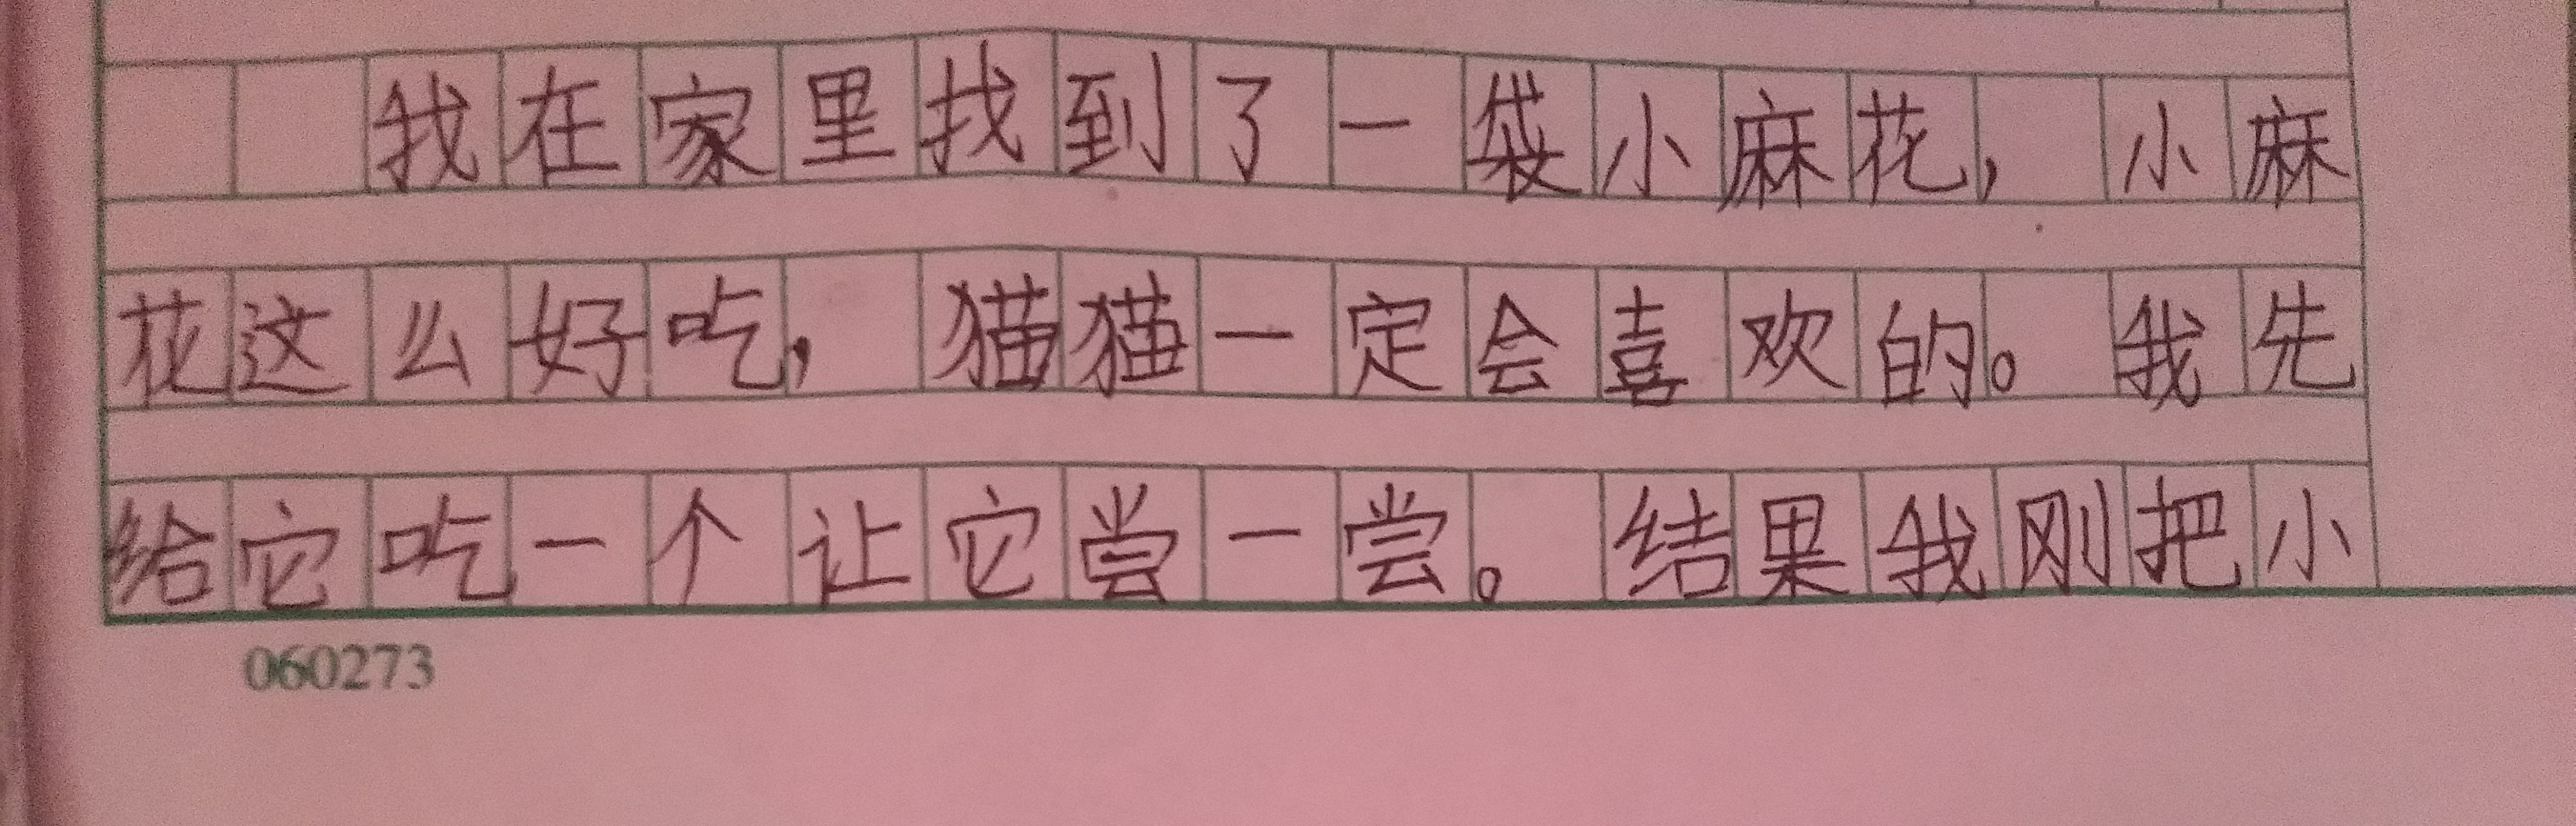 我在家里找到了一袋小麻花，小麻
花这么好吃，猫猫一定会喜欢的。我先
给它吃一个让它尝一尝。结果我刚把小
060273